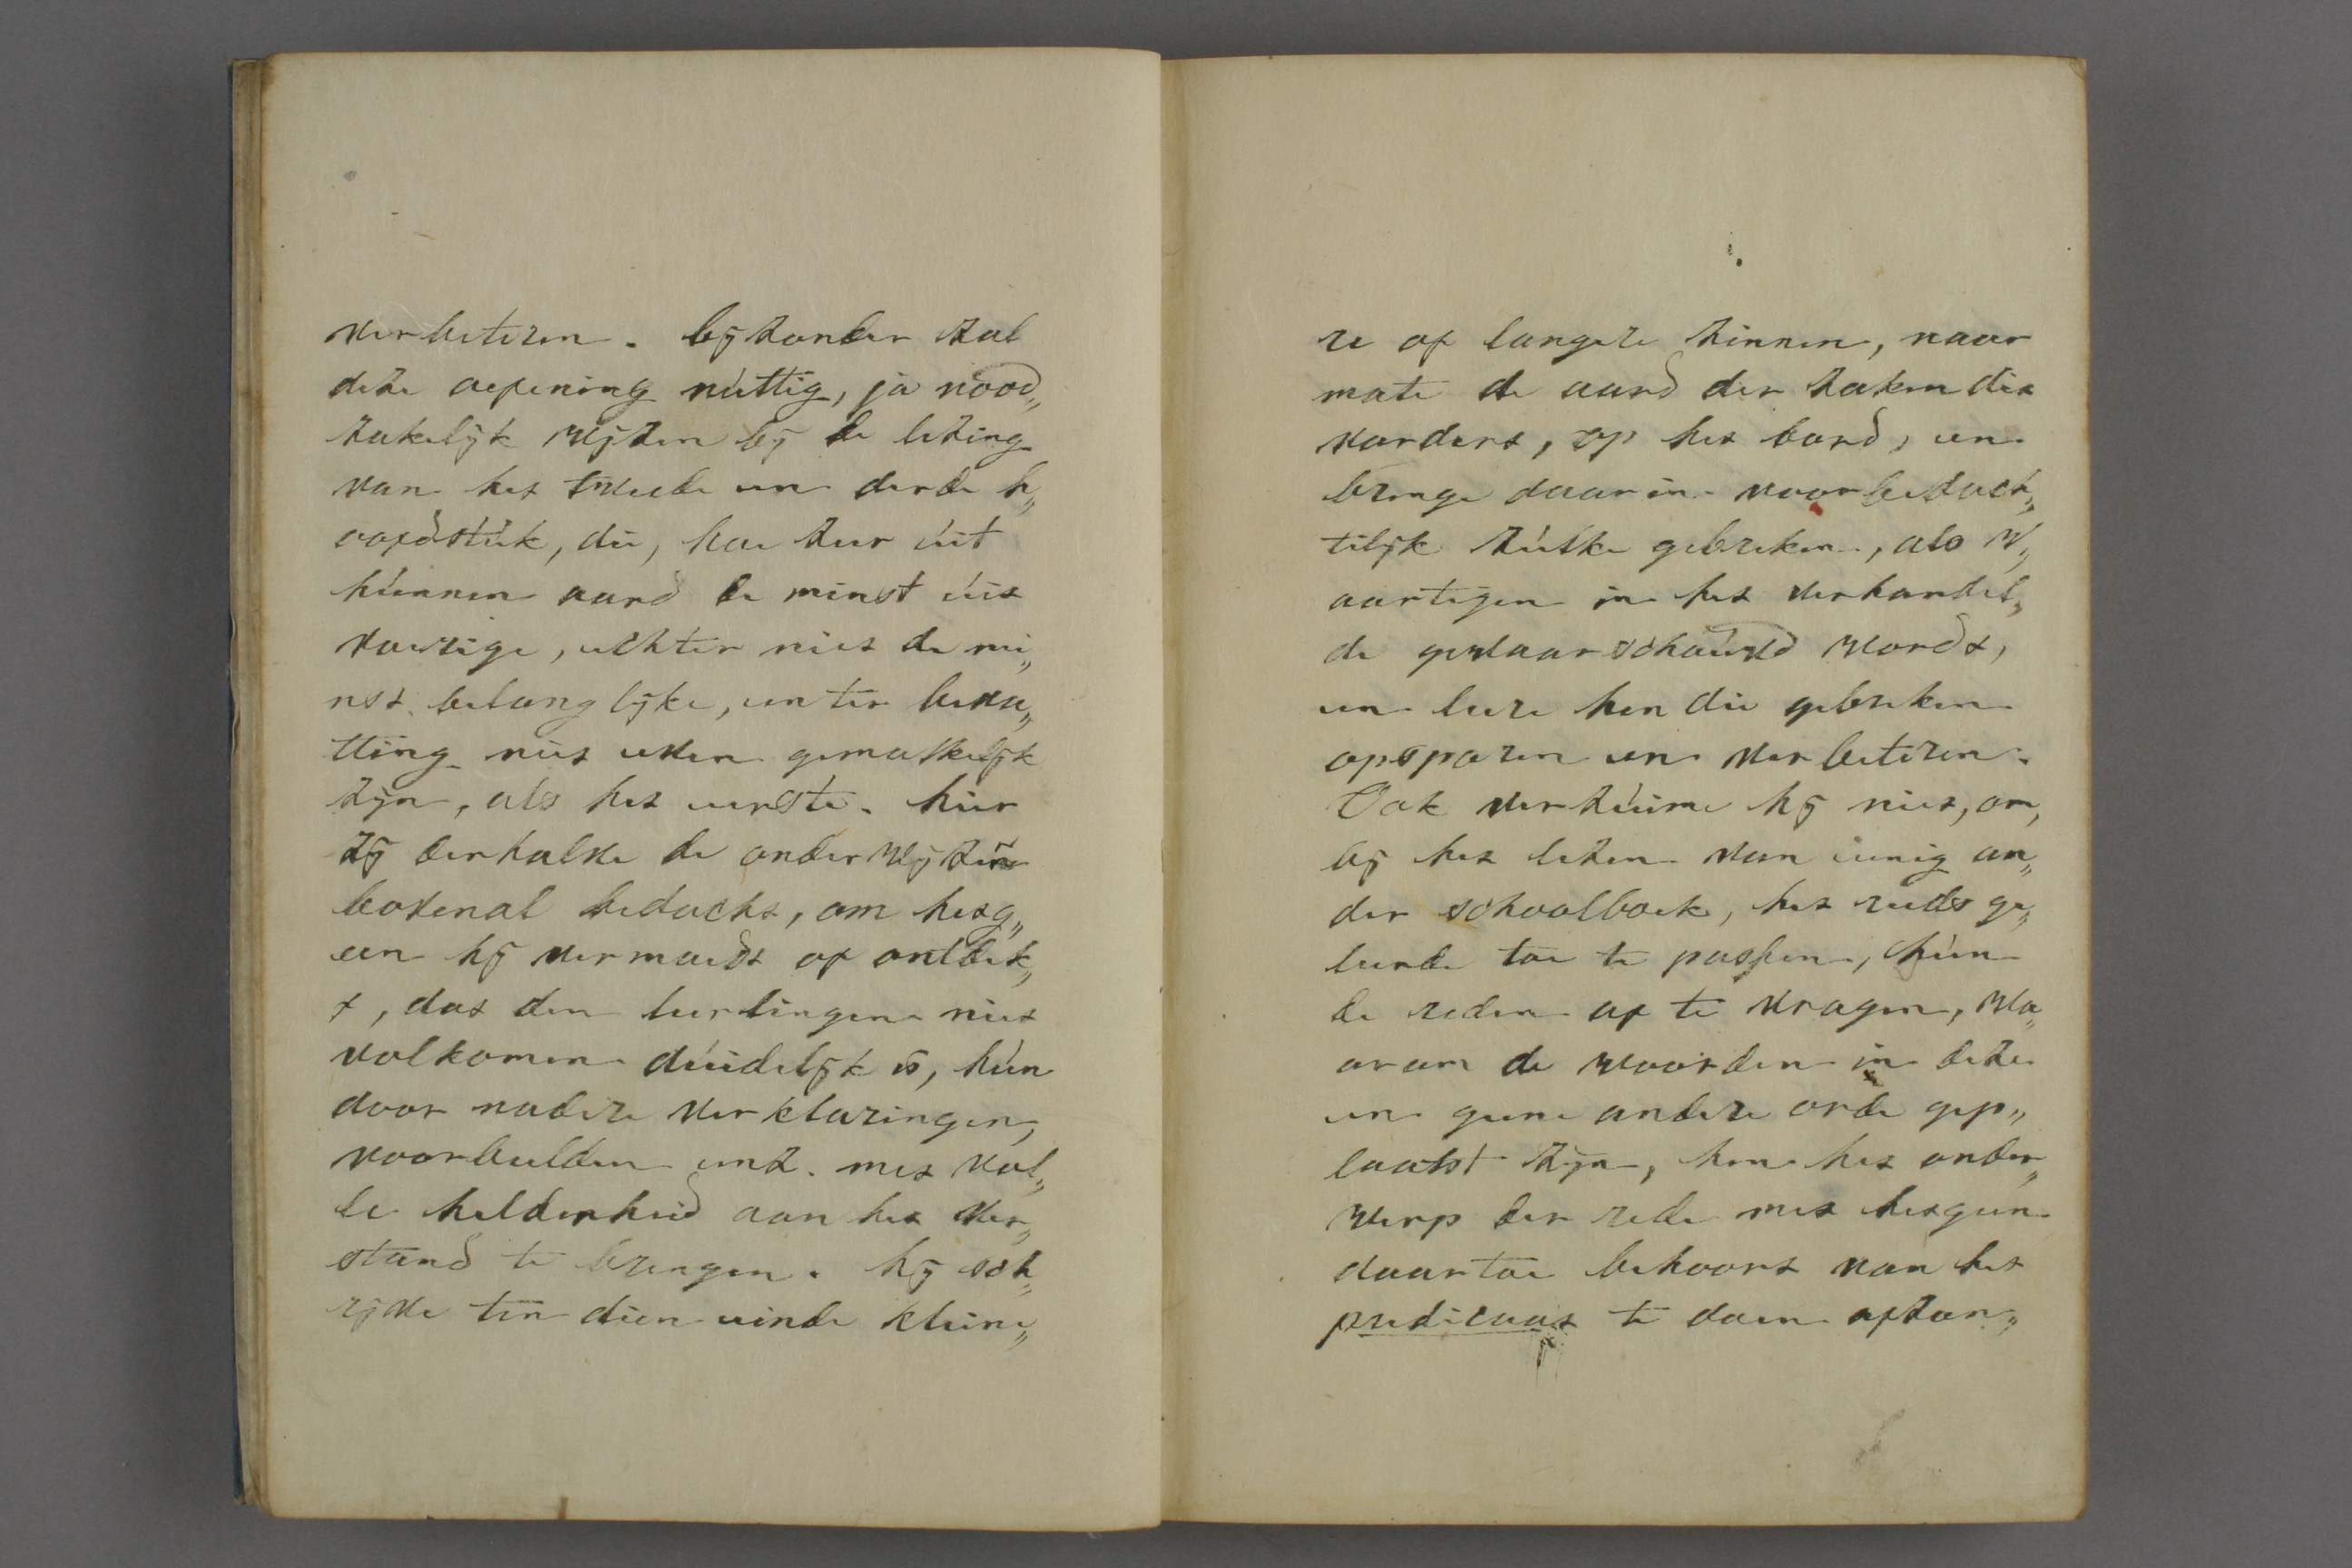 verbeteren. bijzonder zal
deze oefening nuttig, ja nood„
zakelijk wijzen bij de lezing
van het tweede en derde h„
oofdstuk, die, hoe zeer uit
hunnen aard de minst uit
voerige, echter niet de mi„
nst belanglijke, en ter beva„
tting niet even gemakkelijk
zijn, als het eerste. hier
zij derhalve de onderwijzer
bovenal bedacht, om hetg„
een hij vermoedt of ontdek„
t, dat den leerlingen niet
volkomen duidelijk is, hun
door nadere verklaringen,
voorbeelden enz. met vol„
le helderheid aan het ver„
stand te brengen. hij sch„
rijve ten dien einde kleine„
re of langere zinnen, naar
mate de aard der zaken dit
vordert, op het bord, en
brenge daarin voorbedach„
telijk zulke gebreken, als w„
aartegen in het verhandel„
de gewaarschouwd wordt,
en leere hen die gebreken
opsporen en verbeteren.
Ook verzuime hij niet, om,
bij het lezen van eenig an„
der schoolboek, het reeds ge„
leerde toe te passen, hun
de reden af te vragen, wa„
arom de woorden in deze
en geene andere orde gep„
laatst zijn, hen het onder„
werp der rede met hetgeen
daartoe behoort van het
predicaat te doen afzon„